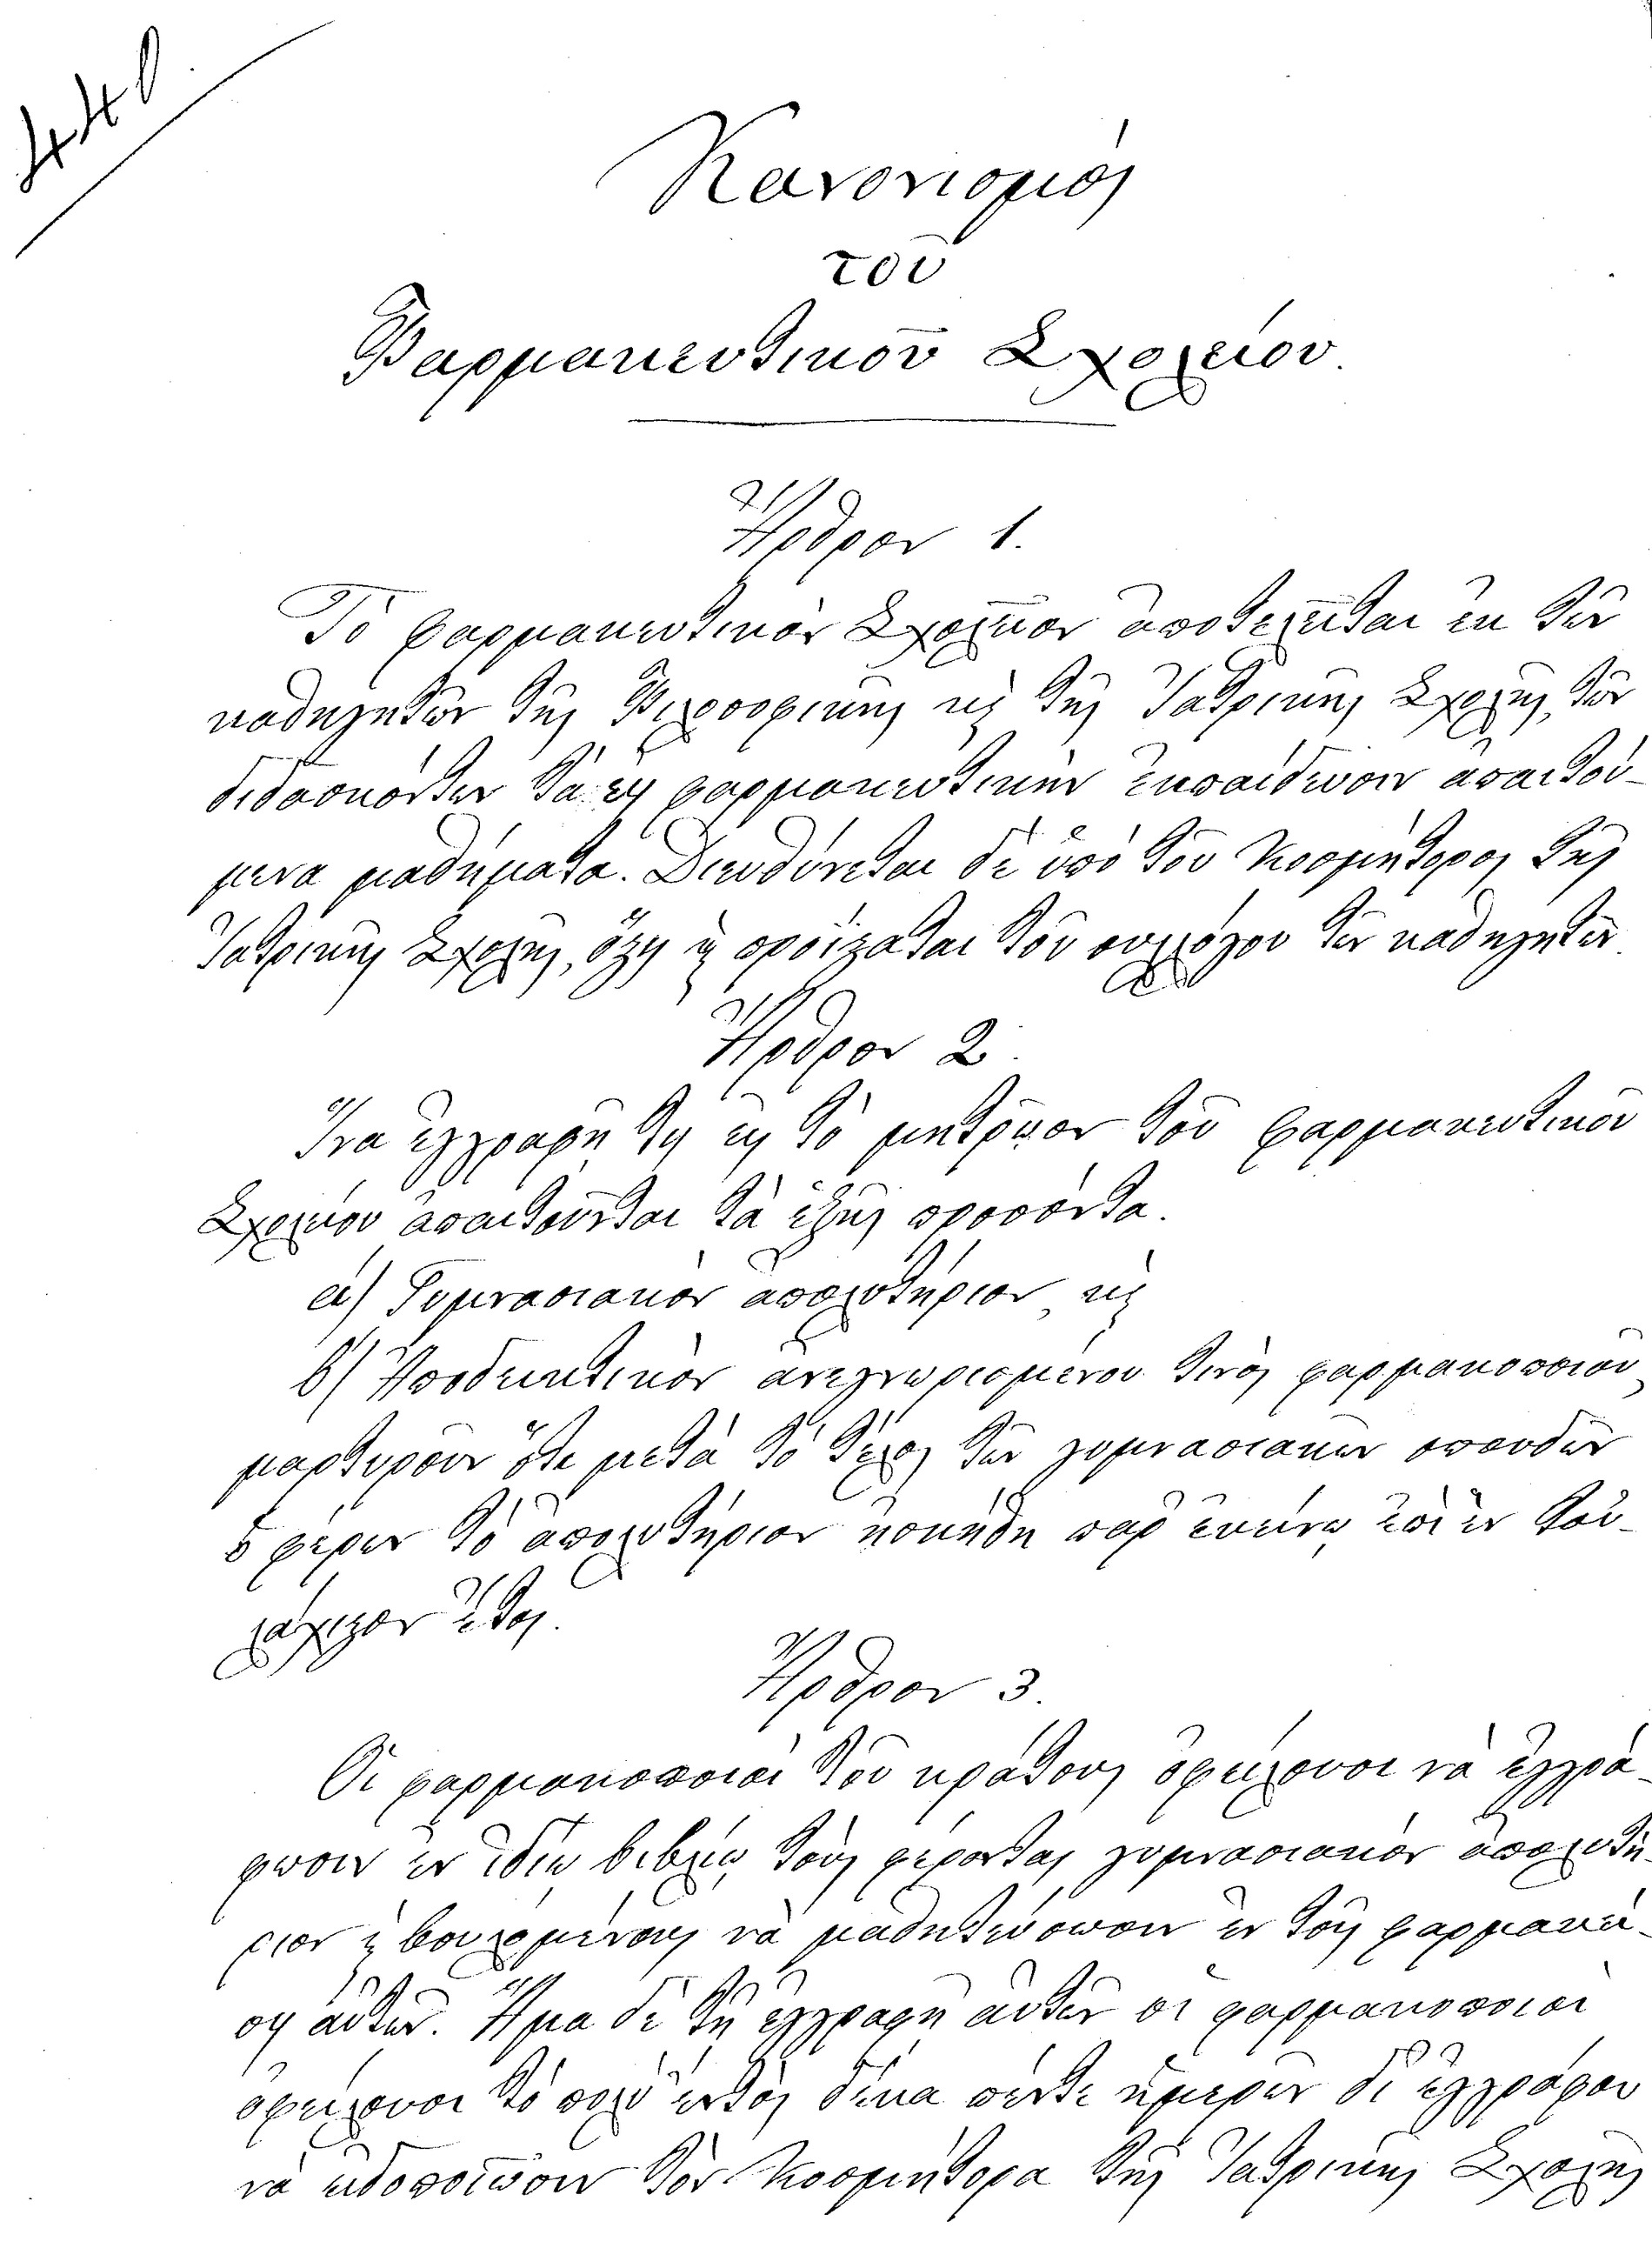 Κανονισμὸς
τοῦ
Φαρμακευτικοῦ Σχολείου.
Ἄρθρον 1.
Τὸ φαρμακευτικὸν Σχολεῖον ἀποτελεῖται ἐκ τῶν
καθηγητῶν τῆς Φιλοσοφικῆς κὶ τῆς Ἰατρικῆς Σχολῆς, τῶν
διδασκόντων τὰ εἰς φαρμακευτικὴν ἐκπαίδευσιν ἀπαιτού-
μενα μαθήματα. Διευθύνεται δὲ ὑπὸ τοῦ Κοσμήτορος τῆς
Ἰατρικῆς Σχολῆς, ὅστις κὶ προΐσταται τοῦ συλλόγου τῶν καθηγητῶν.
Ἄρθρον 2.
Ἵνα ἐγγραφῇ τις εἰς τὸ μητρῷον τοῦ φαρμακευτικοῦ
Σχολείου ἀπαιτοῦνται τὰ ἑξῆς προσόντα.
α) Γυμνασιακὸν ἀπολυτήριον, κὶ
β) Ἀποδεικτικὸν ἀνεγνωρισμένου τινὸς φαρμακοποιοῦ,
μαρτυροῦν ὅτι μετὰ τὸ τέλος τῶν γυμνασιακῶν σπουδῶν
ὁ φέρων τὸ ἀπολυτήριον ἠσκήθη παρ' ἐκείνῳ ἐπὶ ἓν τοὐ-
λάχιστον ἔτος.
Ἄρθρον 3.
Οἱ φαρμακοποιοὶ τοῦ κράτους ὀφείλουσι νὰ ἐγγρά-
φωσιν ἐν ἰδίῳ βιβλίῳ τοὺς φέροντας γυμνασιακὸν ἀπολυτή-
ριον κὶ βουλομένους νὰ μαθητεύσωσιν ἐν τοῖς φαρμακεί-
οις αὐτῶν. Ἅμα δὲ τῇ ἐγγραφῇ αὐτῶν οἱ φαρμακοποιοὶ
ὀφείλουσι τὸ πολὺ ἐντὸς δέκα πέντε ἡμερῶν δι' ἐγγράφου
νὰ εἰδοποιῶσιν τὸν Κοσμήτορα τῆς Ἰατρικῆς Σχολῆς